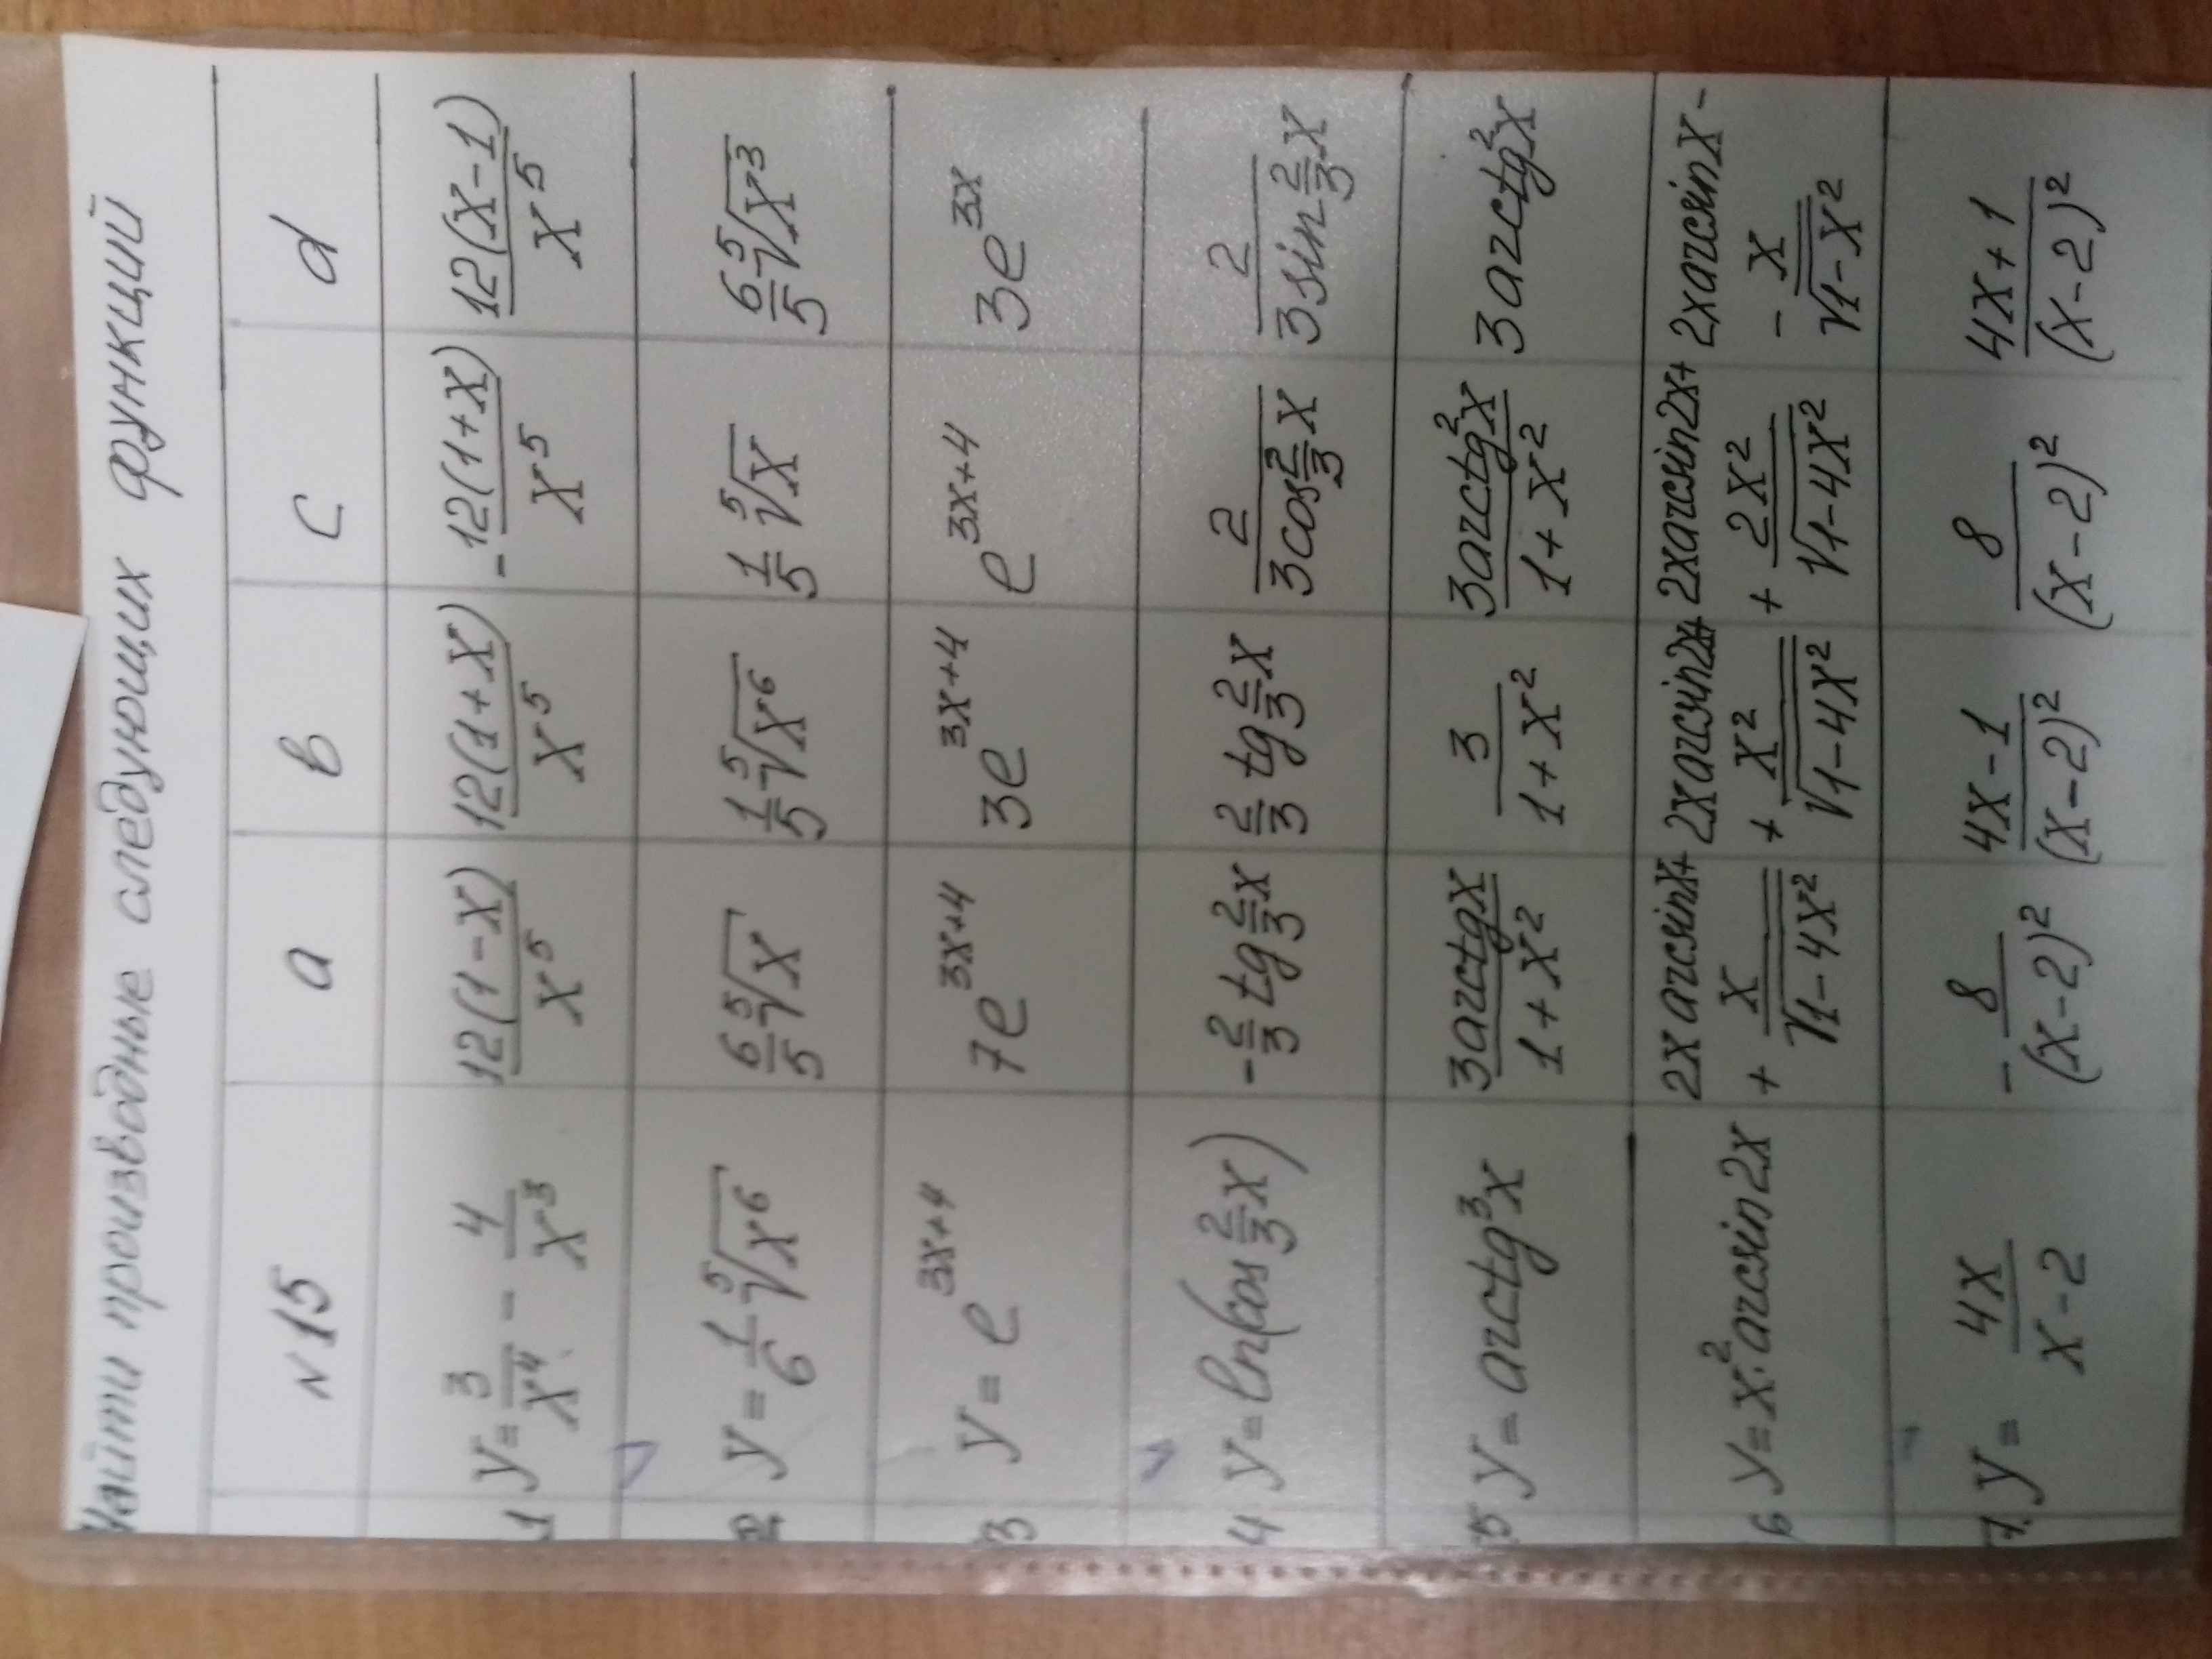 Найти производные следующих функций
N15 a в c d
1 y = 3/x⁴ - 4/x³ 12(1-x)/x⁵ 12(1+x)/x⁵ -12(1+x)/x⁵ 12(x-1)/x⁵
2 y = 1/6 ⁵√x⁶ 6/5 ⁵√x 1/5 ⁵√x⁶ 1/5 ⁵√x 6/5 ⁵√x³
3 y = e³ˣ⁺⁴ 7e³ˣ⁺⁴ 3e³ˣ⁺⁴ e³ˣ⁺⁴ 3e³ˣ
4 y = ln(cos 2/3 x) -2/3 tg 2/3 x 2/3 tg 2/3 x 2/(3cos 2/3 x) 2/(3sin 2/3 x)
5 y = arctg³x 3arctgx/(1+x²) 3/(1+x²) 3arctg²x/(1+x²) 3arctg²x
6 y = x²·arcsin2x 2x arcsinx+ 2xarcsin2x+ 2xarcsin2x+ 2xarcsinx-
+ x/√1-4x² + x²/√1-4x² + 2x²/√1-4x² - x/√1-x²
7. y = 4x/(x-2) - 8/(x-2)² 4x-1/(x-2)² 8/(x-2)² 4x+1/(x-2)²